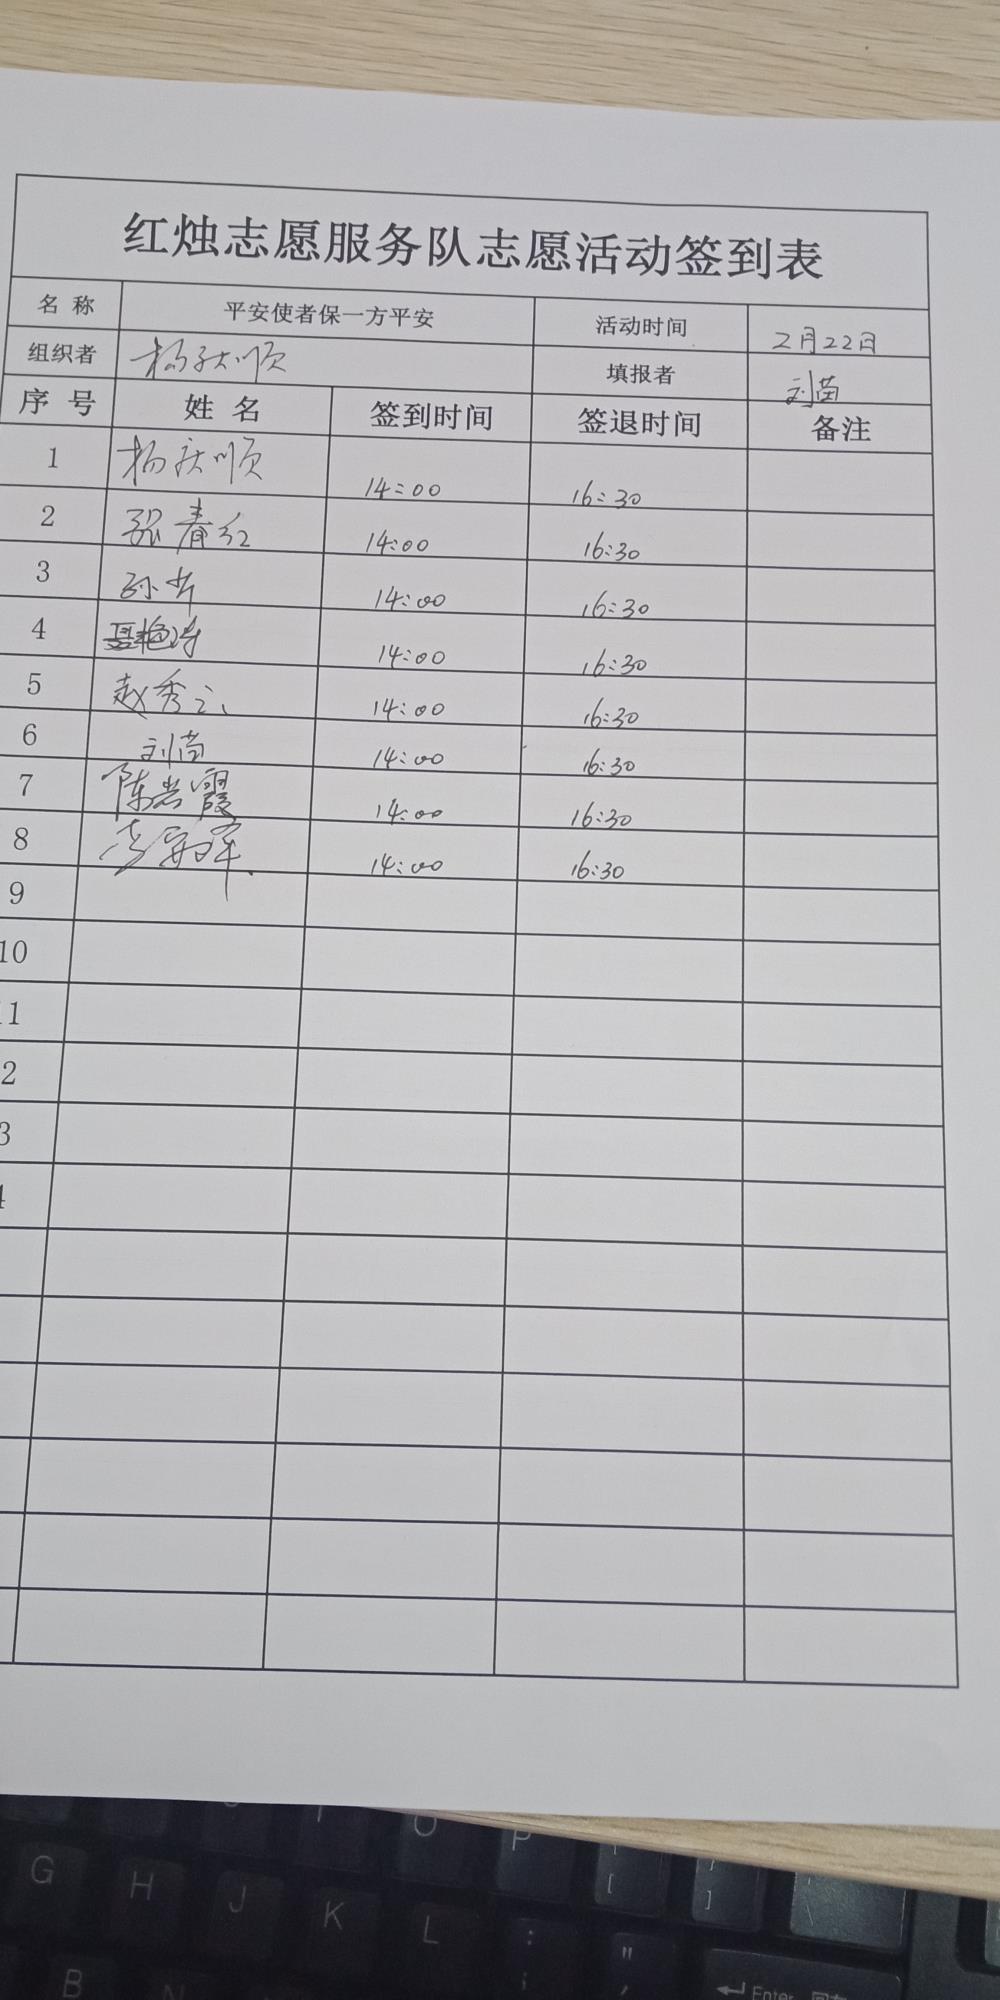 红烛志愿服务队志愿活动签到表
名 称 平安使者保一方平安 活动时间 2月22日
组织者 杨庆顺 填报者 刘苗
序 号 姓 名 签到时间 签退时间 备注
1 杨庆顺 14:00 16:30
2 张春红 14:00 16:30
3 孙 14:00 16:30
4 聂艳涛 14:00 16:30
5 赵秀云 14:00 16:30
6 刘苗 14:00 16:30
7 陈岩霞 14:00 16:30
8 李 14:00 16:30
9
10
11
2
3
4
O P [ ]
G H J K L : ; " '
B N Enter